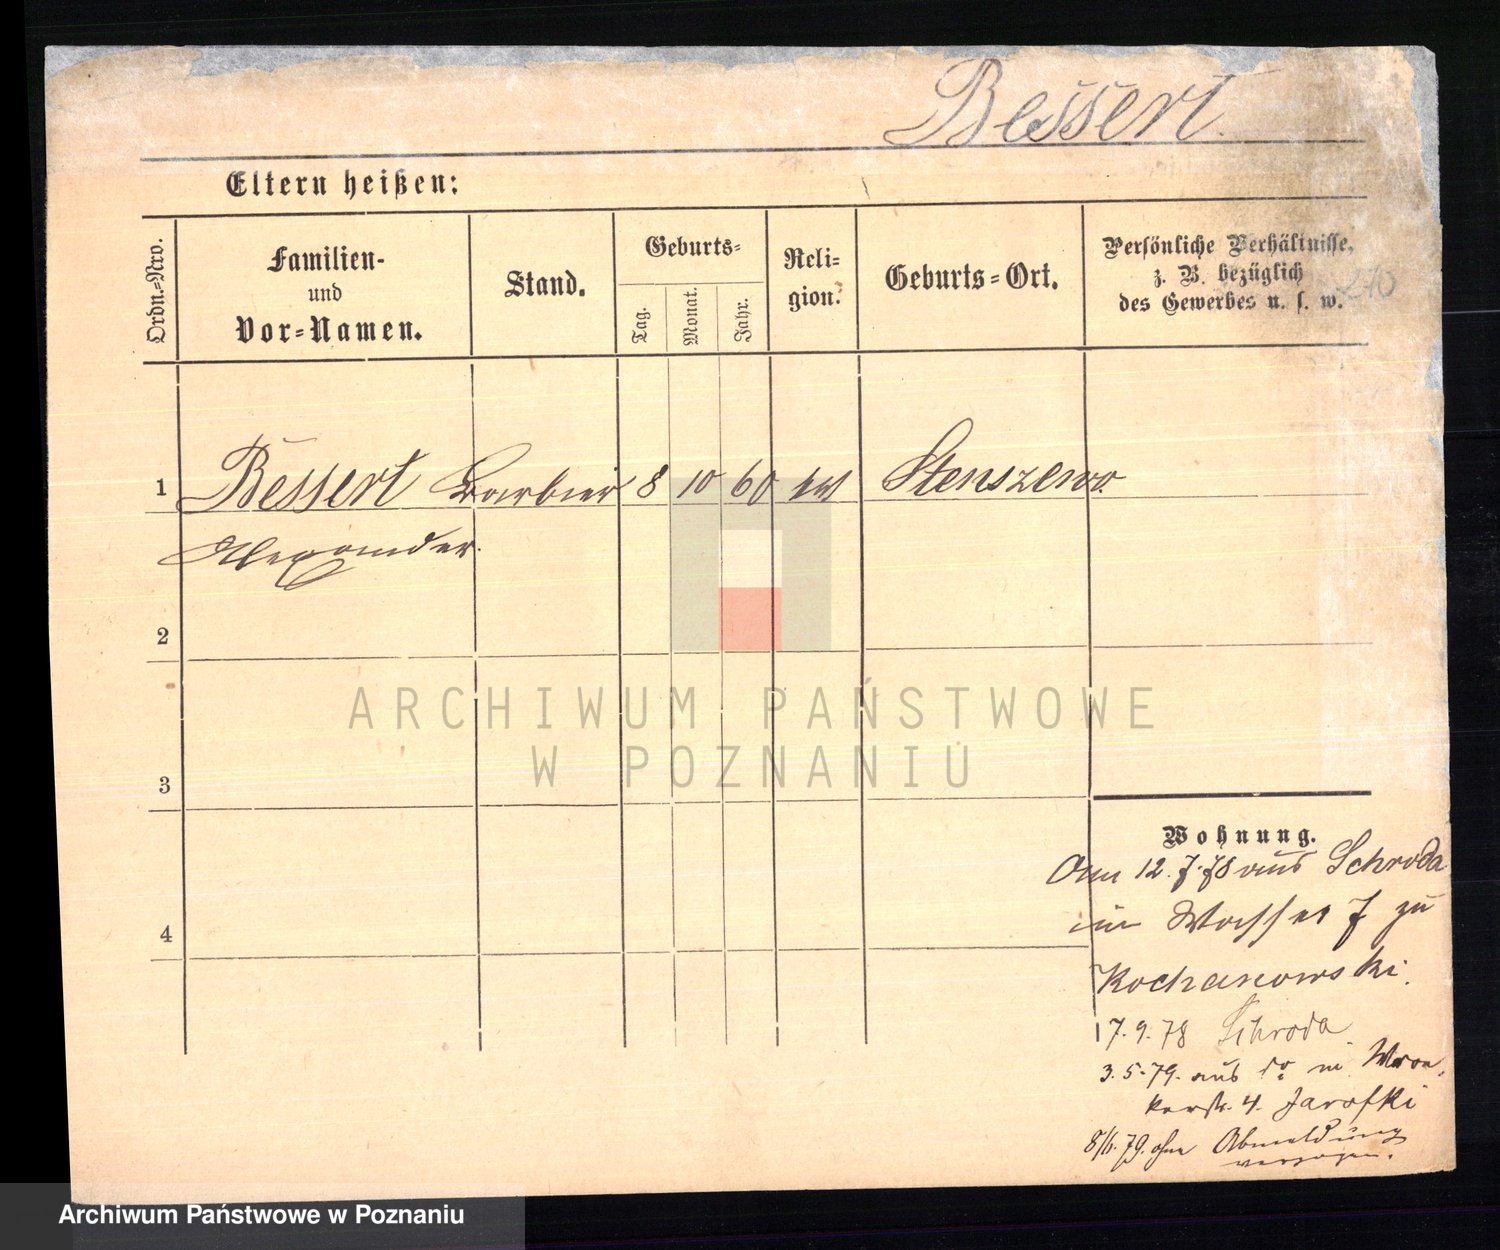 Bessert
Eltern heißen:
Ordn.-Nro.
Familien-
und
Vor-Namen.
Stand.
Geburts-
Tag.
Monat.
Jahr.
Reli-
gion.
Geburts-Ort.
Persönliche Verhältnisse,
z. B. bezüglich
des Gewerbes u. s. w.
270
1 Bessert Barbier 8 10 60 kt Stenszewo
Alexander.
2
3
4
Wohnung.
Am 12.7.78 aus Schroda
in Wasser 7 zu
Kochanowski.
17.9.78 Schroda
3.5.79. aus do in Wron-
kerstr. 4. Jarofki
8/6.79. ohne Abmeldung
verzogen.
ARCHIWUM PAŃSTWOWE
W POZNANIU
Archiwum Państwowe w Poznaniu